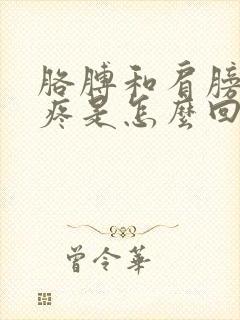 胳膊和肩膀
疼是怎麼回
曾令華